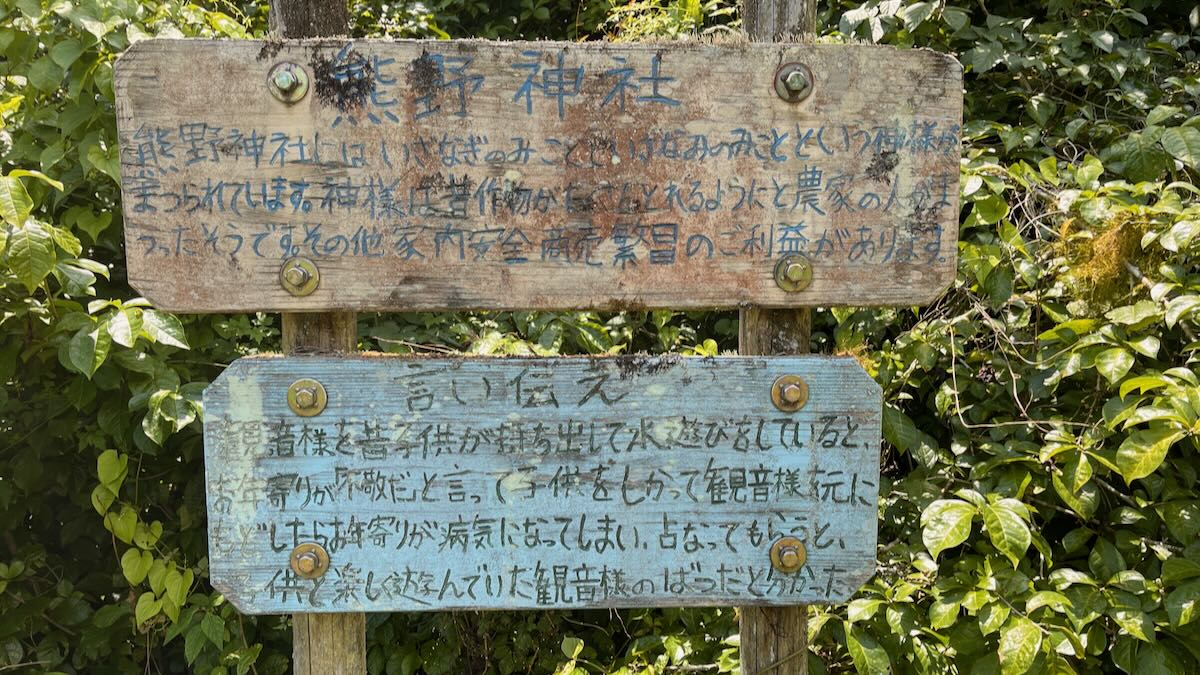 熊野神社
熊野神社にはいざなぎのみことといざなみのみことという神様が
まつられています。神様は昔作物がたくさんとれるようにと農家の人がま
つったそうです。その他家内安全商売繁昌のご利益があります。
言い伝え
観音様を昔子供が持ち出して水遊びをしていると、
お年寄りが「不敬だ」と言って子供をしかって観音様を元に
もどしたらお年寄りが病気になってしまい、占なってもらうと、
子供と楽しく遊んでいた観音様のばつだと分かった